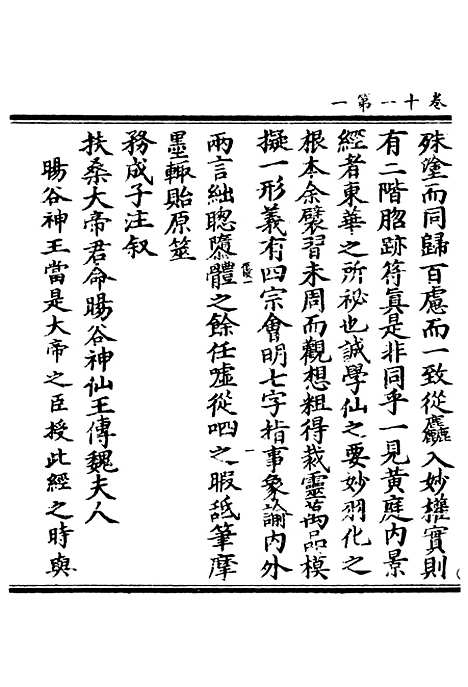 卷十一第一
殊塗而同歸百慮而一致從麤入妙權實則
有二階脗跡符真是非同乎一見黃庭內景
經者東華之所祕也誠學仙之要妙羽化之
根本余襞習未周而觀想粗得裁靈萬品模
擬一形義有四宗會明七字指事象諭內外
兩言絀聰隳體之餘任噓從呬之暇舐筆摩
墨輒貽原筮
務成子注叙
扶桑大帝君命暘谷神仙王傳魏夫人
暘谷神王當是大帝之臣授此經之時與